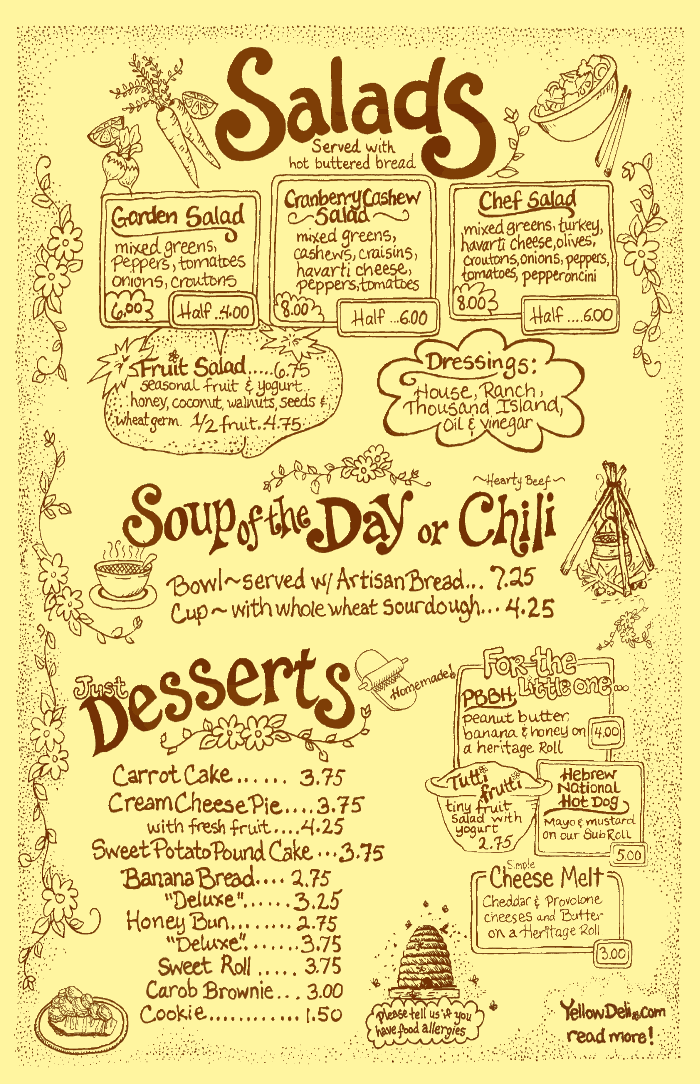 Salads
Served with
hot buttered bread
Garden Salad
mixed greens,
peppers, tomatoes
onions, croutons
6.00
Half .4.00
Cranberry Cashew
Salad
mixed greens,
cashews, craisins,
havarti cheese,
peppers, tomatoes
8.00
Half ...6.00
Chef Salad
mixed greens, turkey,
havarti cheese, olives,
croutons, onions, peppers,
tomatoes, pepperoncini
8.00
Half ....6.00
Fruit Salad.....6.75
seasonal fruit & yogurt
honey, coconut, walnuts, seeds &
wheat germ. 1/2 fruit. 4.75
Dressings:
House, Ranch,
Thousand Island,
Oil & vinegar
~Hearty Beef~
Soup of the Day or Chili
Bowl~served w/ Artisan Bread... 7.25
Cup~ with whole wheat sourdough... 4.25
Just
Desserts
Homemade!
Carrot Cake...... 3.75
Cream Cheese Pie.... 3.75
with fresh fruit....4.25
Sweet Potato Pound Cake ...3.75
Banana Bread.... 2.75
"Deluxe"...... 3.25
Honey Bun........ 2.75
"Deluxe"....... 3.75
Sweet Roll ..... 3.75
Carob Brownie... 3.00
Cookie............ 1.50
For the
Little one...
PBBH
peanut butter
banana & honey on
a heritage Roll
4.00
Tutti
frutti
tiny fruit
salad with
yogurt
2.75
Hebrew
National
Hot Dog
Mayo & mustard
on our Sub Roll
5.00
Simple
Cheese Melt
Cheddar & Provolone
cheeses and Butter
on a Heritage Roll
3.00
Please tell us if you
have food allergies
YellowDeli.com
read more!